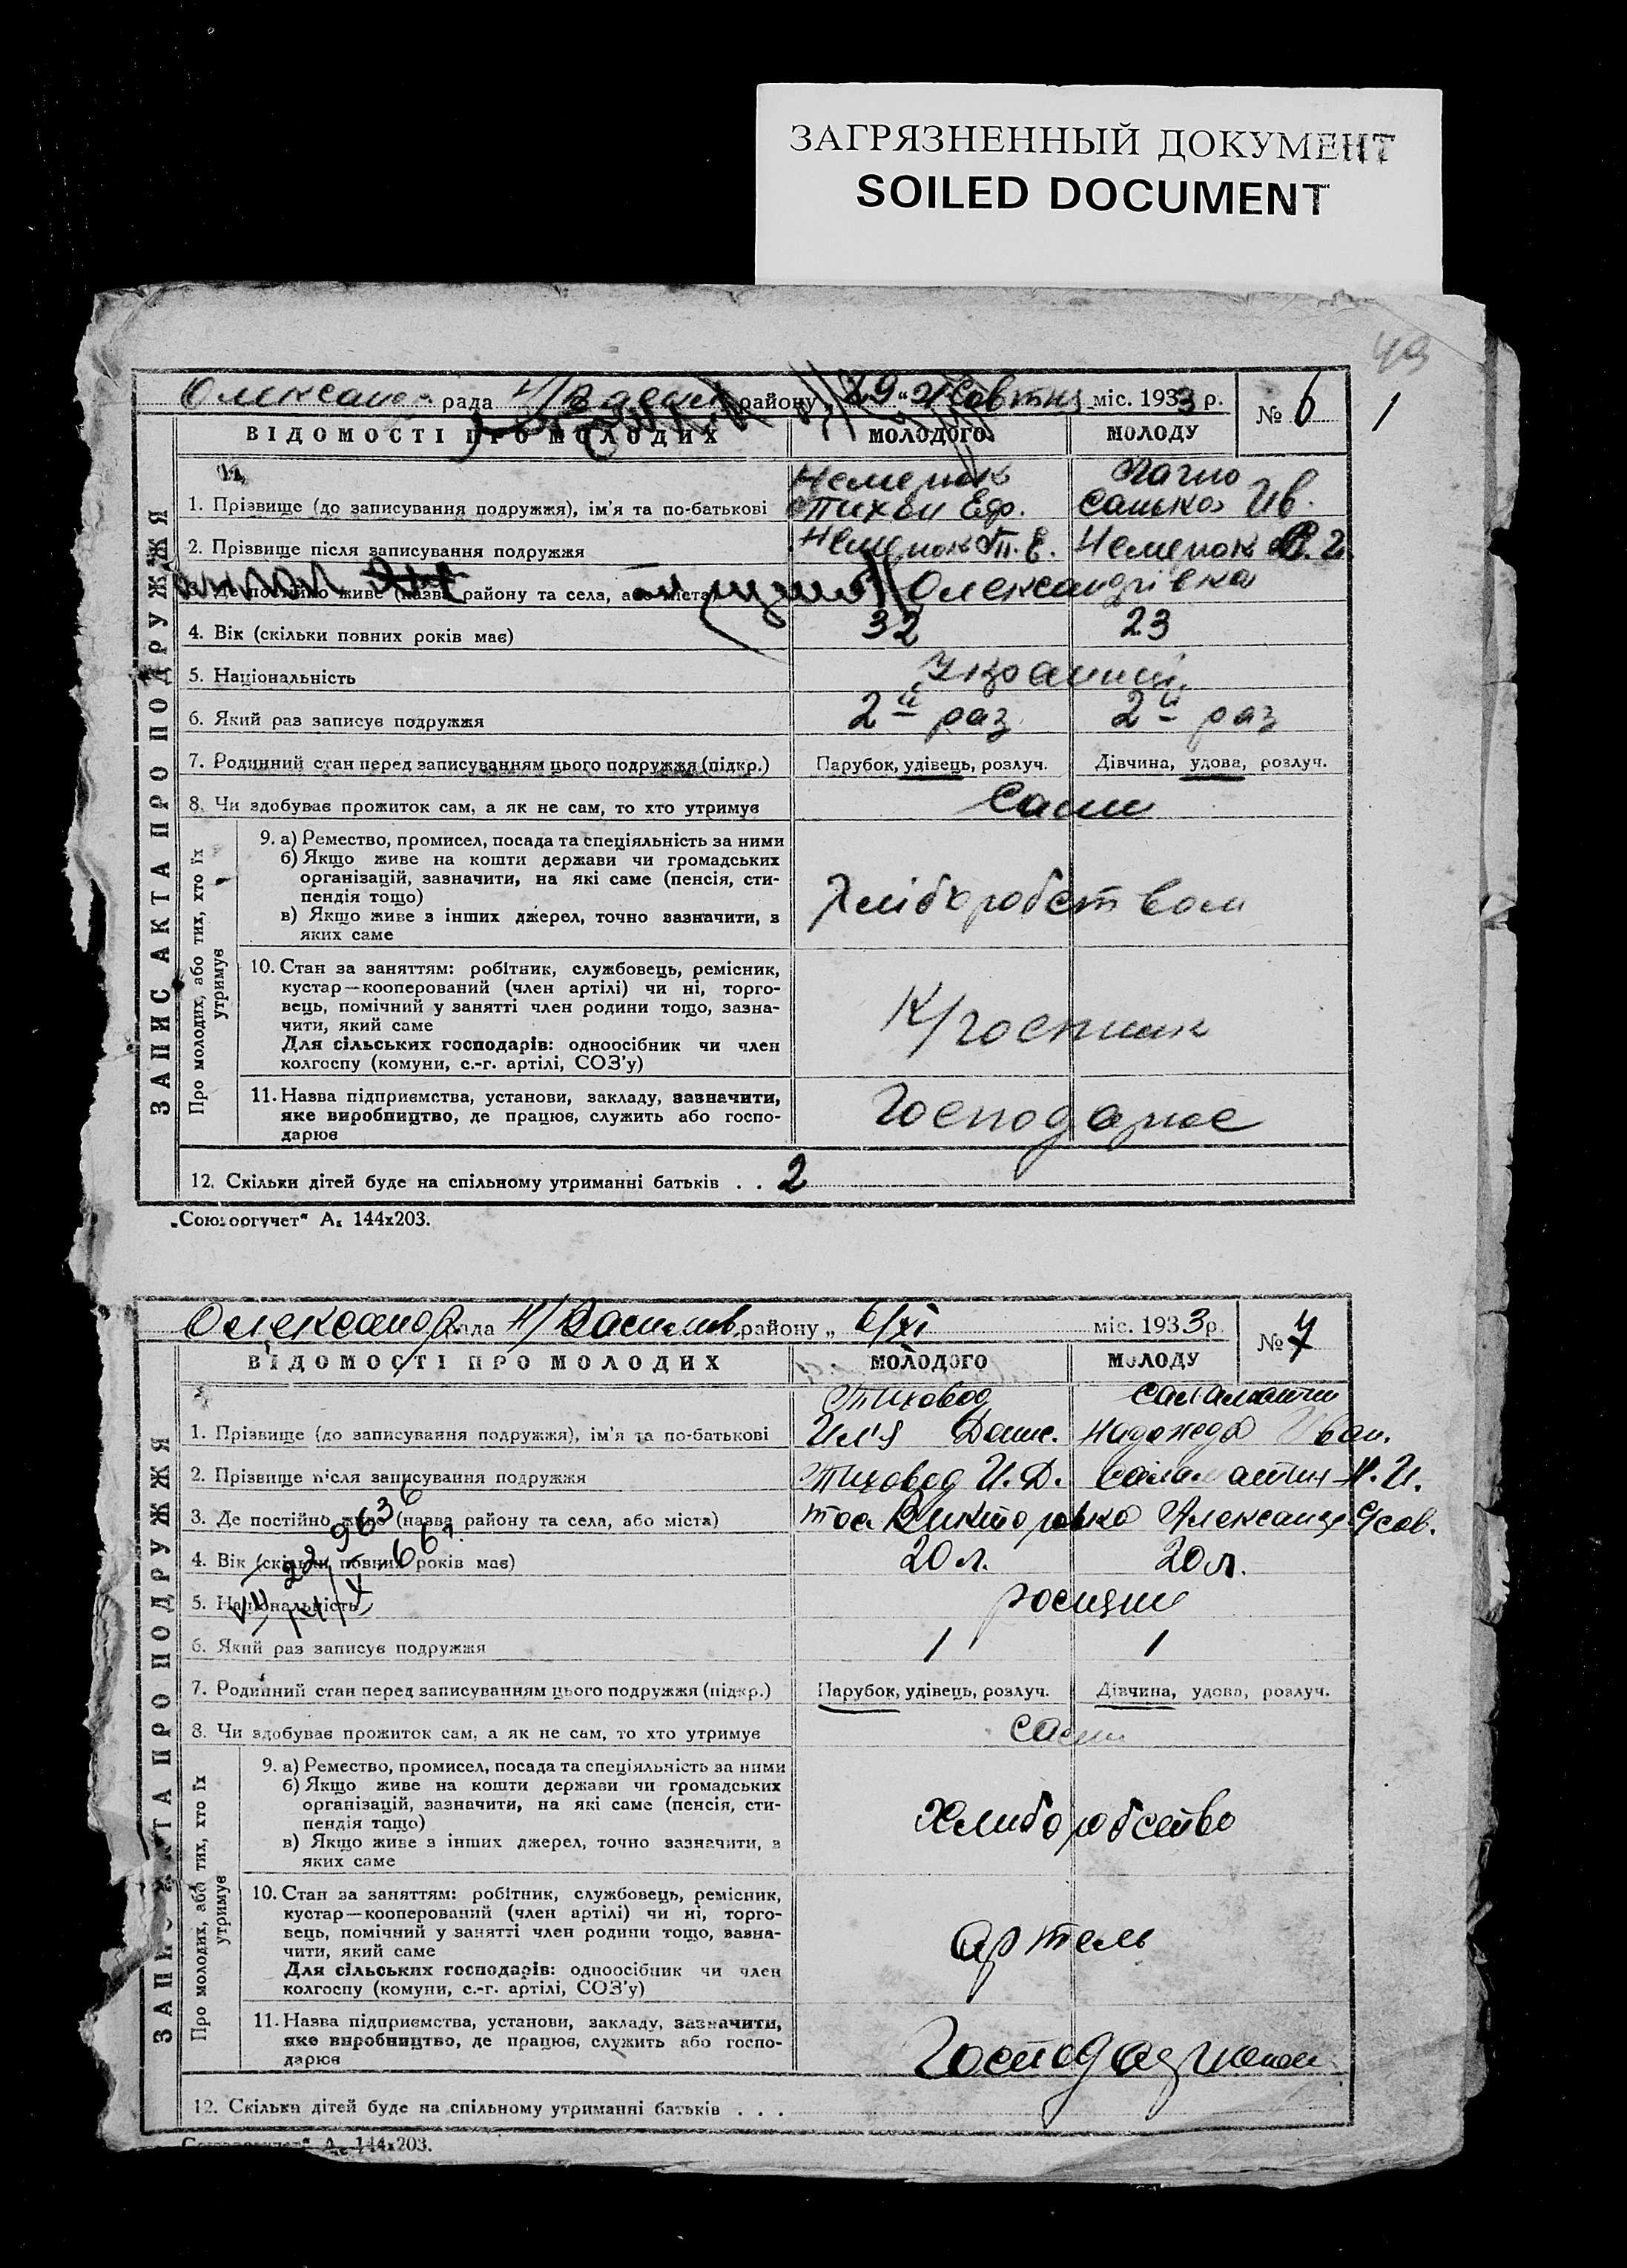 ЗАГРЯЗНЕННЫЙ ДОКУМЕНТ
SOILED DOCUMENT
49
рада району „29“ Жовтня міс. 1933 р. № 6
1
ВІДОМОСТІ ПРО МОЛОДИХ МОЛОДОГО МОЛОДУ
1. Прізвище (до записування подружжя), ім'я та по-батькові Тихон Еф. Ив.
2. Прізвище після записування подружжя
3. Де постійно живе (назва району та села, або міста) Олександрівка
4. Вік (скільки повних років має) 32 23
5. Національність
6. Який раз записує подружжя 2й раз 2й раз
7. Родинний стан перед записуванням цього подружжя (підкр.) Парубок, удівець, розлуч. Дівчина, удова, розлуч.
8. Чи здобуває прожиток сам, а як не сам, то хто утримує Сами
ЗАПИС АКТА ПРО ПОДРУЖЖЯ
Про молодих, або тих, хто їх утримує
9. а) Ремество, промисел, посада та спеціяльність за ними
б) Якщо живе на кошти держави чи громадських
організацій, зазначити, на які саме (пенсія, сти-
пендія тощо)
в) Якщо живе з інших джерел, точно зазначити, з
яких саме
Хліборобством
10. Стан за заняттям: робітник, службовець, ремісник,
кустар—кооперований (член артілі) чи ні, торго-
вець, помічний у занятті член родини тощо, зазна-
чити, який саме
Для сільських господарів: одноосібник чи член
колгоспу (комуни, с.-г. артілі, СОЗ'у)
К/госпник
11. Назва підприємства, установи, закладу, зазначити,
яке виробництво, де працює, служить або госпо-
дарює
Господарює
12. Скільки дітей буде на спільному утриманні батьків . . 2
„Союзоргучет“ А₅ 144х203.
Олександр рада Н/Василів району „ 6/XI міс. 1933 р. № 7
ВІДОМОСТІ ПРО МОЛОДИХ МОЛОДОГО МОЛОДУ
Тиховод
1. Прізвище (до записування подружжя), ім'я та по-батькові Ил'я Дани. Надежда Иван.
2. Прізвище після записування подружжя Тиховод И. Д. Н. И.
3. Де постійно живе (назва району та села, або міста) Викторовка
4. Вік (скільки повних років має) 20 л. 20 л.
5. Національність росияни
6. Який раз записує подружжя 1 1
7. Родинний стан перед записуванням цього подружжя (підкр.) Парубок, удівець, розлуч. Дівчина, удова, розлуч.
8. Чи здобуває прожиток сам, а як не сам, то хто утримує сами
ЗАПИС АКТА ПРО ПОДРУЖЖЯ
Про молодих, або тих, хто їх утримує
9. а) Ремество, промисел, посада та спеціяльність за ними
б) Якщо живе на кошти держави чи громадських
організацій, зазначити, на які саме (пенсія, сти-
пендія тощо)
в) Якщо живе з інших джерел, точно зазначити, з
яких саме
Хлиборобство
10. Стан за заняттям: робітник, службовець, ремісник,
кустар—кооперований (член артілі) чи ні, торго-
вець, помічний у занятті член родини тощо, зазна-
чити, який саме
Для сільських господарів: одноосібник чи член
колгоспу (комуни, с.-г. артілі, СОЗ'у)
артель
11. Назва підприємства, установи, закладу, зазначити,
яке виробництво, де працює, служить або госпо-
дарює
12. Скільки дітей буде на спільному утриманні батьків . . .
„Союзоргучет“ А₅ 144х203.